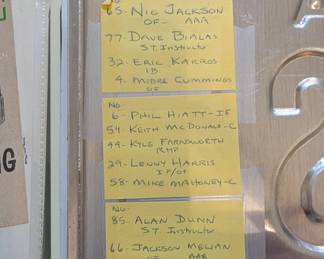 65- Nic Jackson
OF- AAA
77- Dave Bialas
S.T. Instructor
32- Eric Karros
1B
4- Midre Cummings
OF
No.
6- Phil Hiatt-IF
54- Keith McDonald-C
44- Kyle Farnsworth
RHP
29- Lenny Harris
IF/OF
58- Mike Mahoney-C
No.
85- Alan Dunn
S.T. Instructor
66- Jackson Melian
OF- AAA